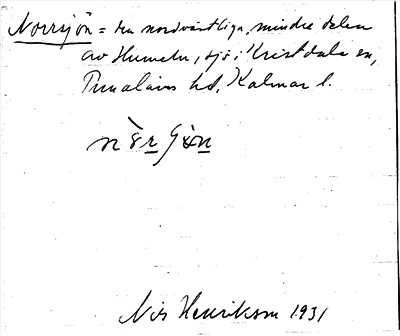 Norrsjön = den nordvästliga, mindre delen
av Hummeln, sjö i Kristdala sn,
Tunaläns hd, Kalmar l.
Nils Henrikson 1931